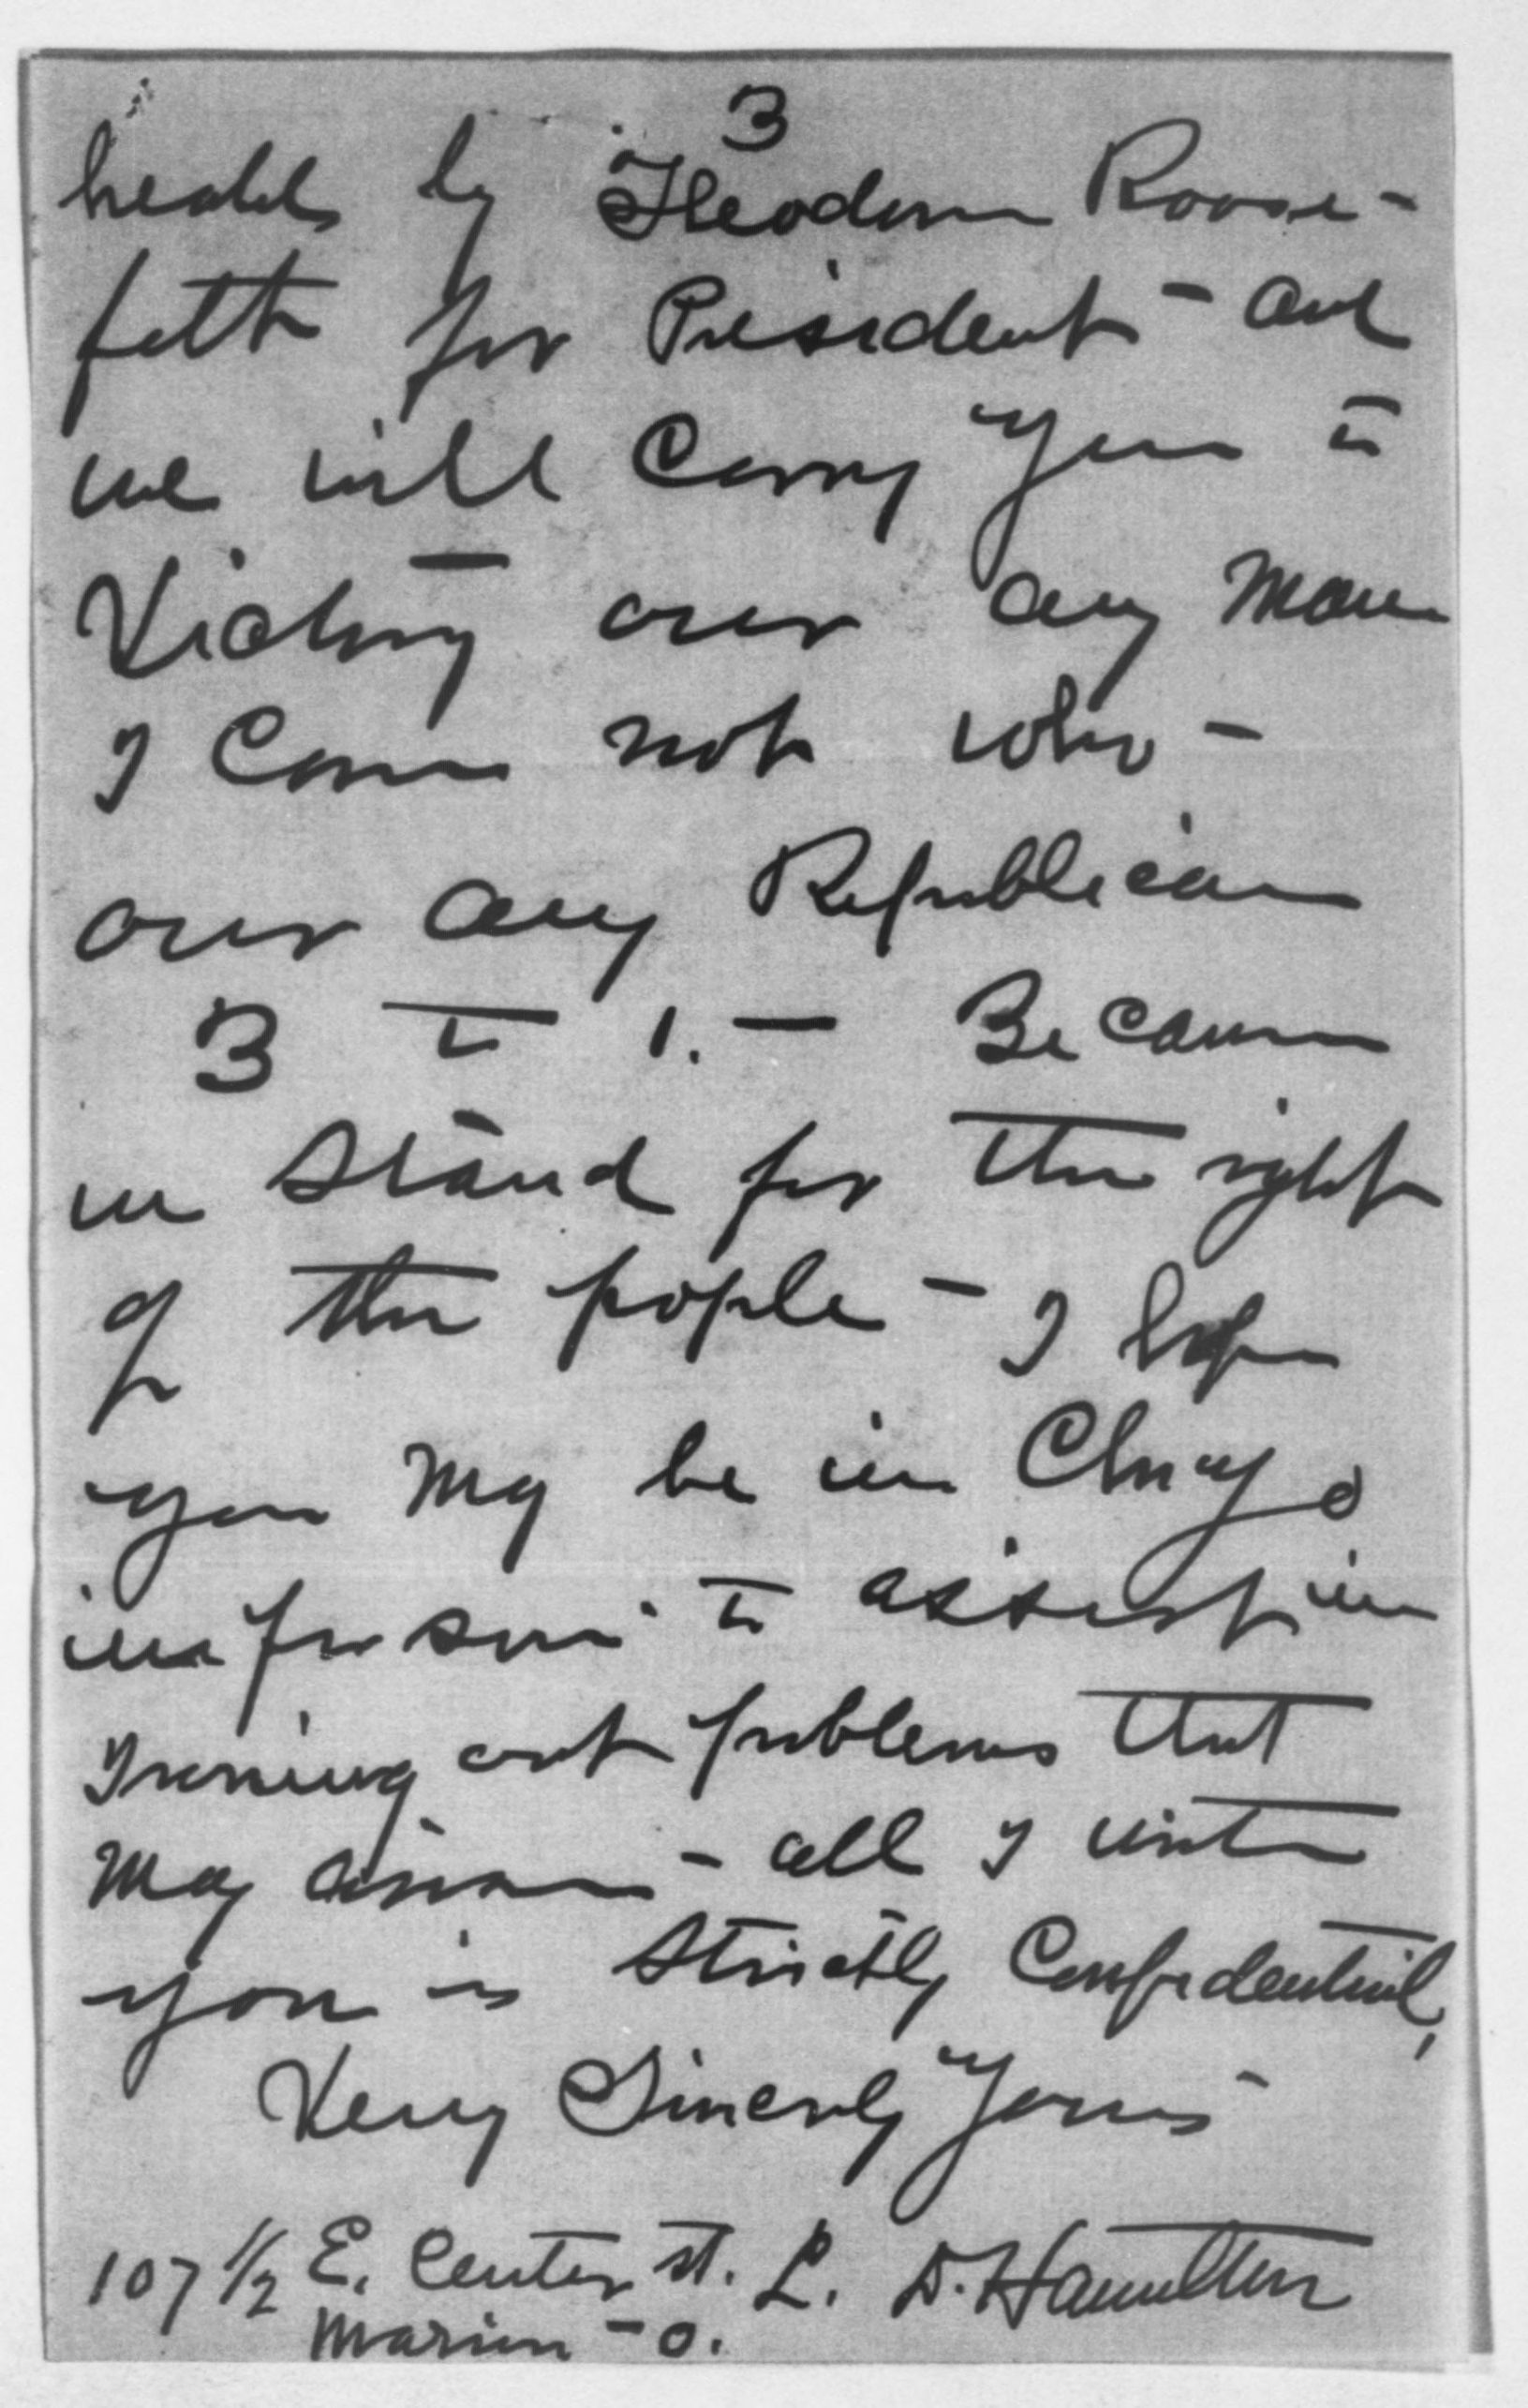 3
headed by Theodore Roose-
felt for President - and
we will Carry you to
Victory over any man
I Care not who -
over any Republican
3 to 1. - Because
we stand for the right
of the people - I hope
you may be in Chicago
in person to assist in
Ironing out problems that
may arise - all I write
you is strictly Confidential,
Very Sincerely Yours
107 1/2 E. Center st. L. D. Hamilton
Marion - O.